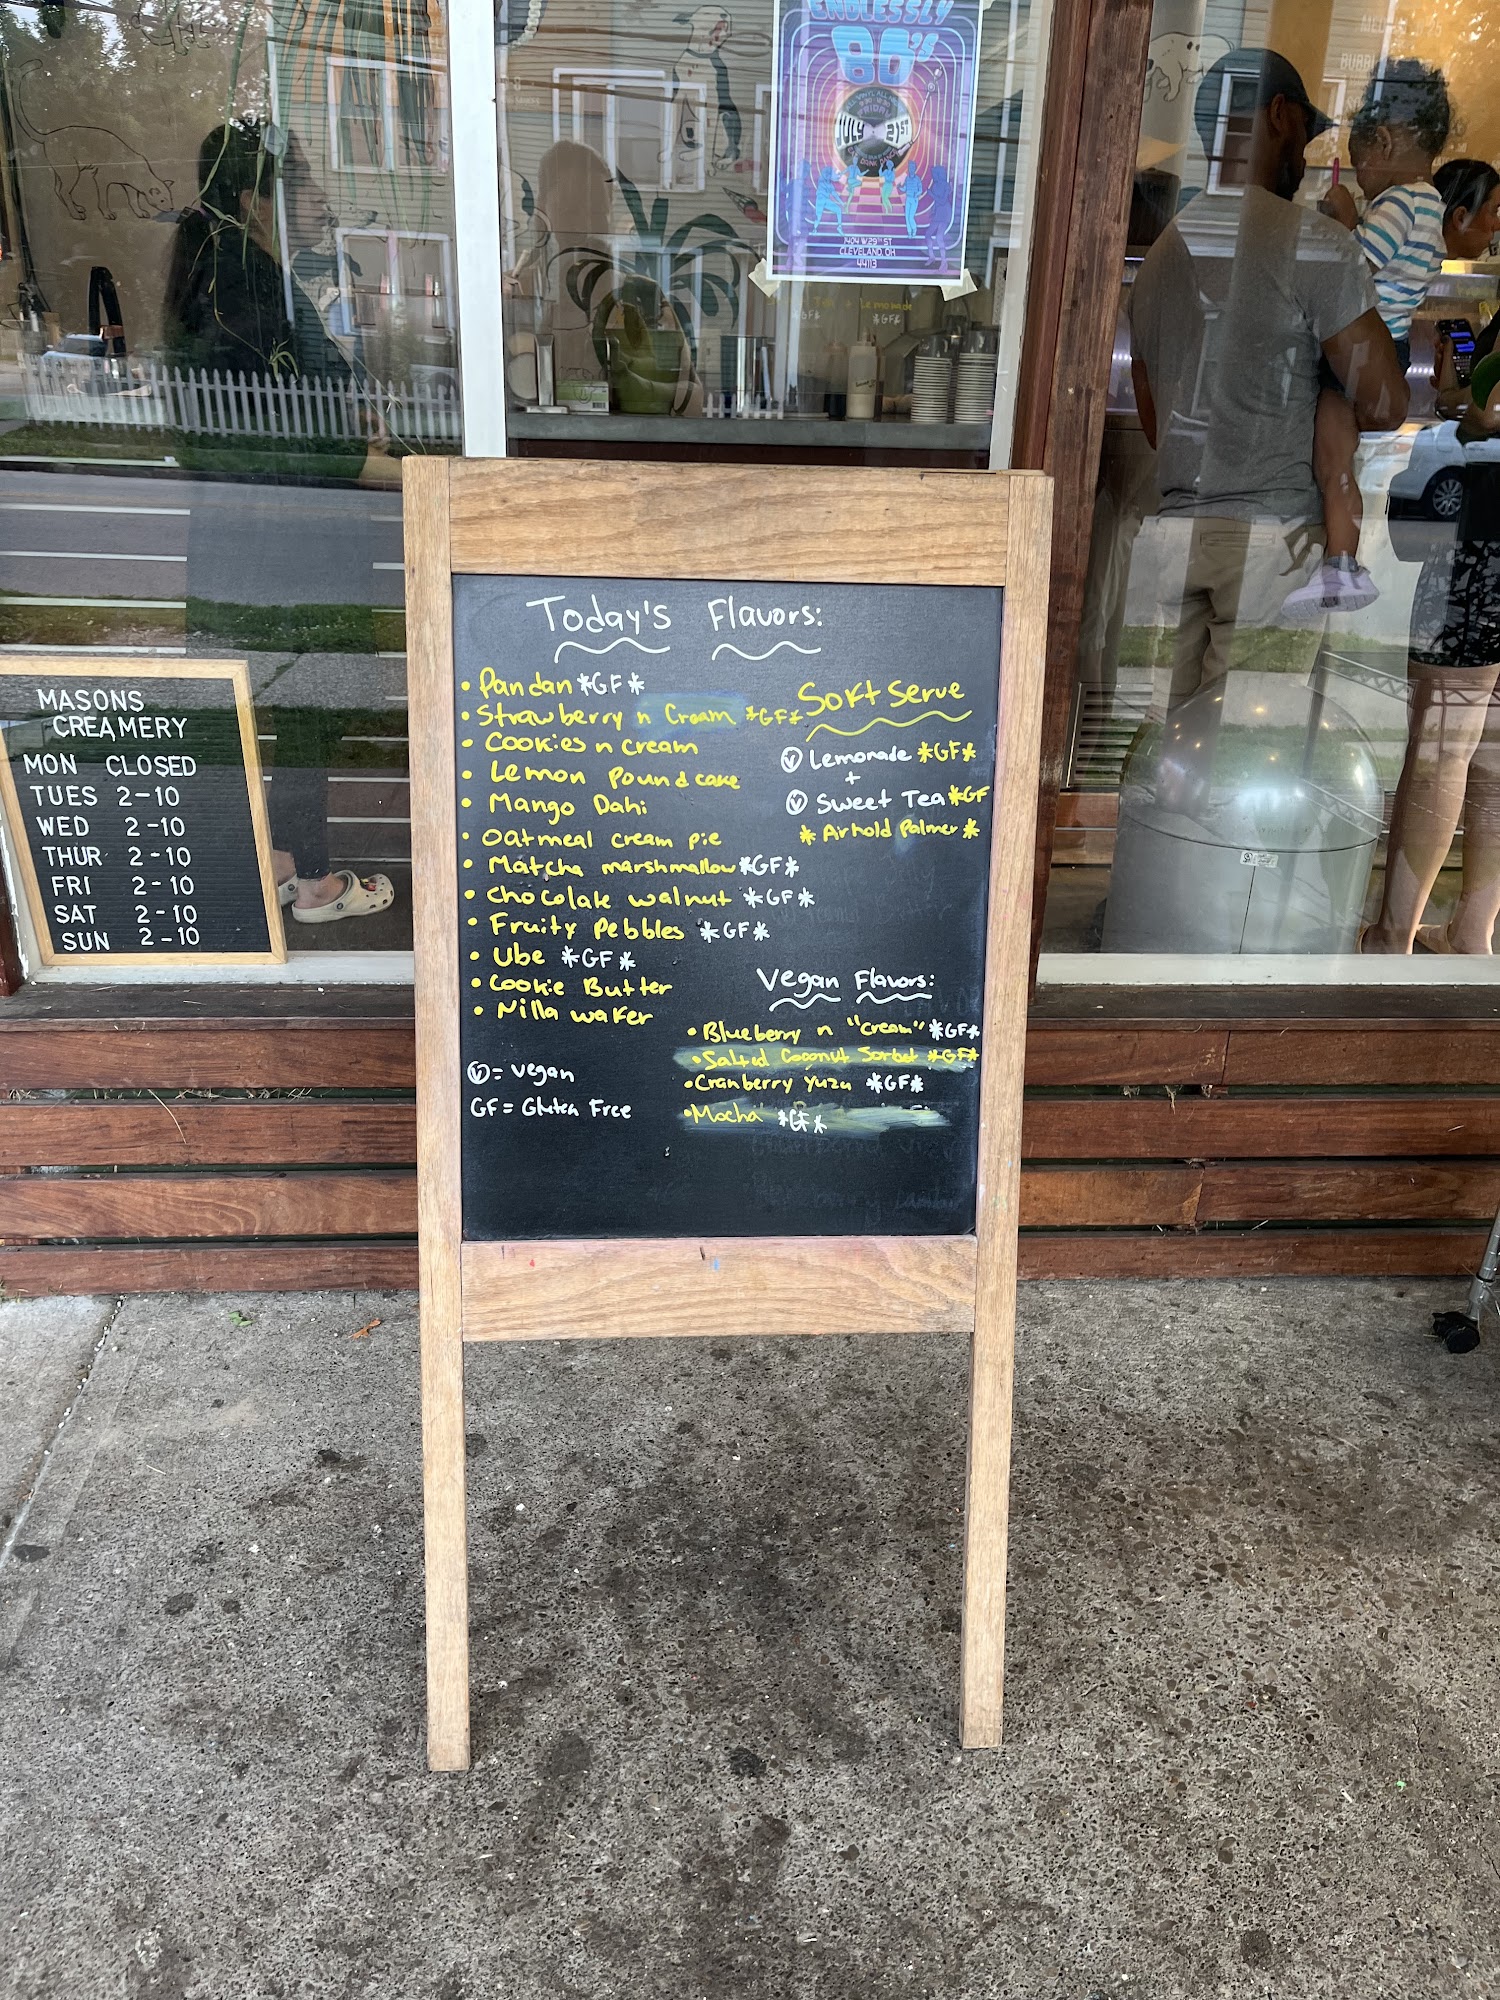 ENDLESSLY
80's
FRIDAY
JULY 21ST
1404 W29TH ST
CLEVELAND, OH
44113
Tea + Lemonade
*GF* *GF*
MASONS
CREAMERY
MON CLOSED
TUES 2-10
WED 2-10
THUR 2-10
FRI 2-10
SAT 2-10
SUN 2-10
Today's Flavors:
• Pandan *GF*
• Strawberry n Cream *GF*
• Cookies n cream
• Lemon Pound cake
• Mango Dahi
• Oatmeal cream pie
• Matcha marshmallow *GF*
• Chocolate walnut *GF*
• Fruity Pebbles *GF*
• Ube *GF*
• Cookie Butter
• Nilla wafer
Ⓥ = vegan
GF = Gluten Free
Soft Serve
Ⓥ Lemonade *GF*
+
Ⓥ Sweet Tea *GF
* Arnold Palmer *
Vegan Flavors:
• Blueberry n "cream" *GF*
• Salted Coconut Sorbet *GF*
• Cranberry yuzu *GF*
• Mocha *GF*